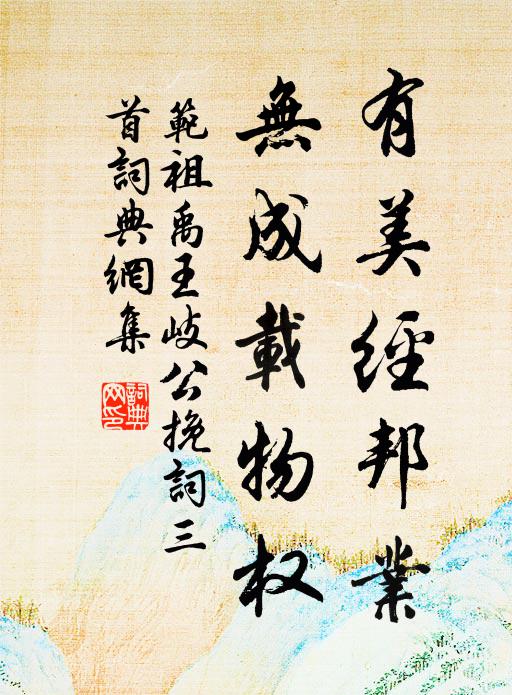 有美經邦業
無成載物权
範祖禹王岐公挽詞三
首詞典網集
詞典
网印